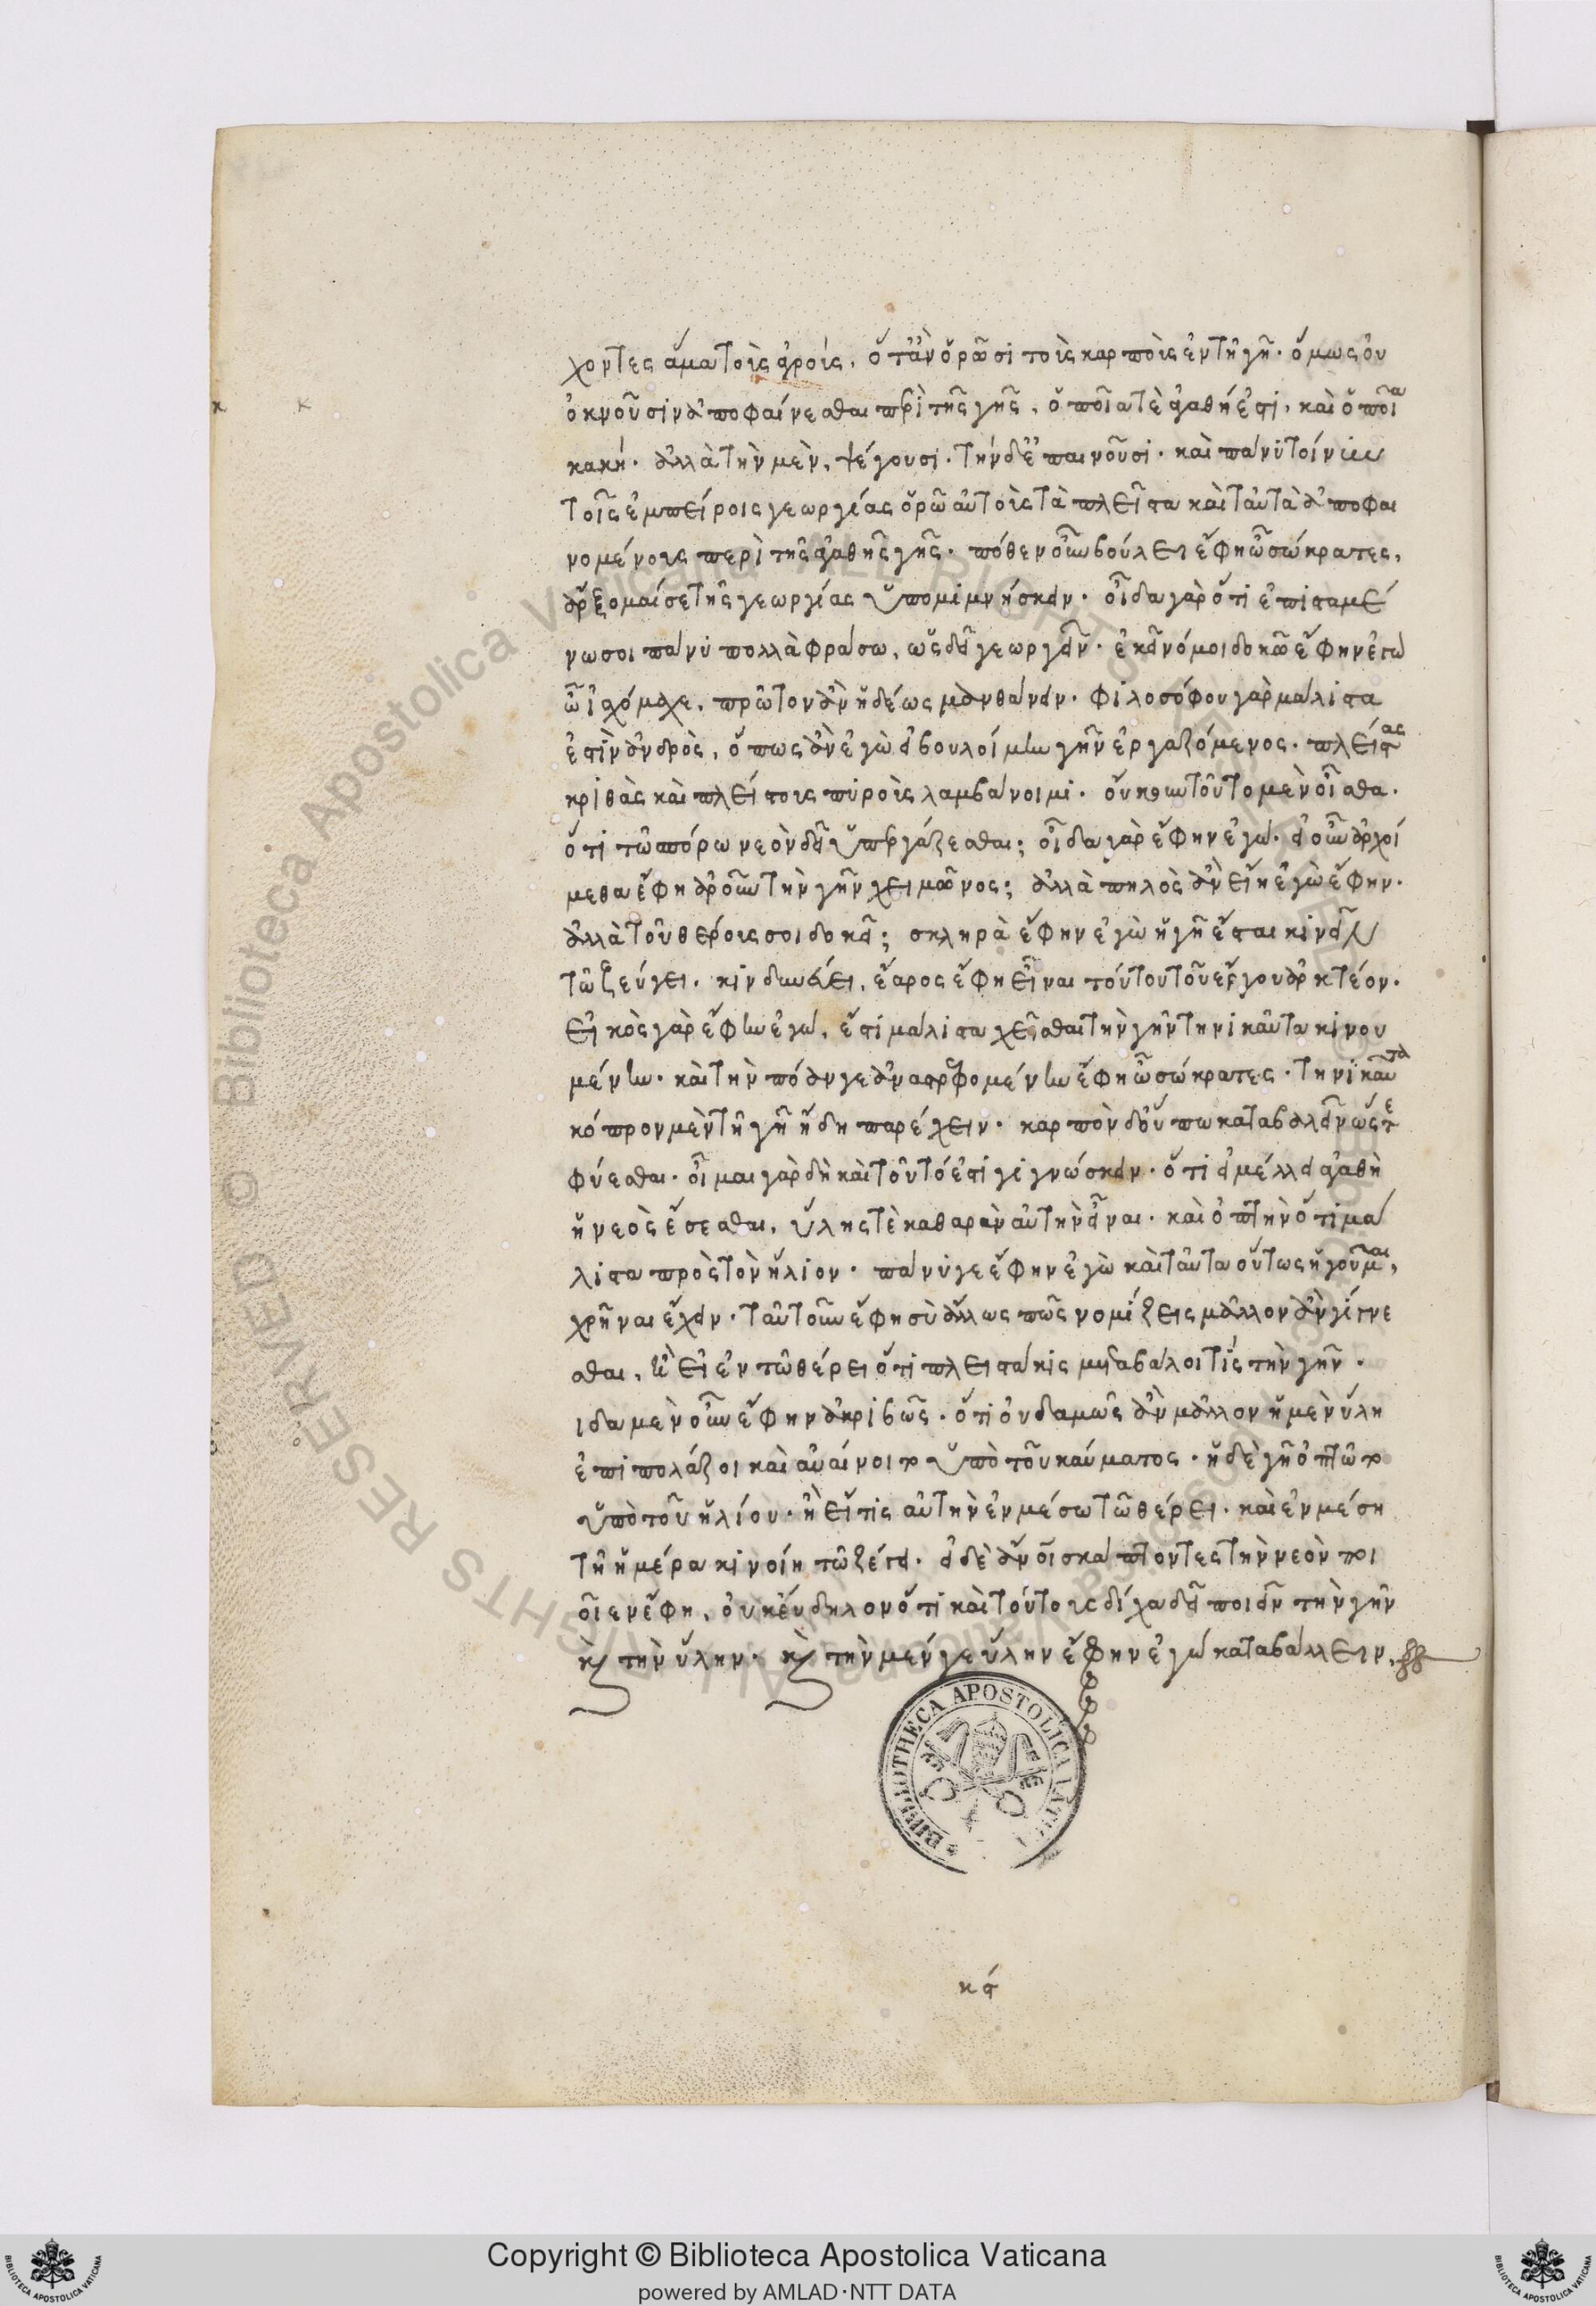 χοντες ἅμα τοῖς ἀγροῖς, ὅταν ὁρῶσι τοὶς καρποὶς ἐν τῇ γῇ· ὅμως οὐ
ὀκνοῦσιν ἀποφαίνεσθαι περὶ τῆς γῆς, ὁποία τὲ ἀγαθή ἐστι, καὶ ὁποία
κακή· ἀλλὰ τὴν μὲν, ψέγουσι· τὴν δ' ἐπαινοῦσι· καὶ πάνυ τοίνυν
τοῖς ἐμπείροις γεωργίας ὁρῶ αὐτοὶς τὰ πλεῖστα καὶ ταὐτὰ ἀποφαι
νομένους περὶ τῆς ἀγαθῆς γῆς· πόθεν οὖν βούλει ἔφη ὦ σώκρατες,
ἄρξομαί σε τῆς γεωργίας ὑπομιμνήσκειν· οἶδα γὰρ ὅτι ἐπισταμέ
νω σοι πάνυ πολλὰ φράσω, ὡς δεῖ γεωργεῖν· ἐκεῖνό μοι δοκῶ ἔφην ἐγὼ
ὦ ἰσχόμαχε, πρῶτον ἂν ἡδέως μανθάνειν· φιλοσόφου γὰρ μάλιστα
ἐστὶν ἀνδρὸς, ὅπως ἂν ἐγὼ εἰ βουλοίμην γῆν ἐργαζόμενος· πλείστας
κριθὰς καὶ πλείστους πυροὶς λαμβάνοιμι· οὐκοῦν τοῦτο μὲν οἶσθα·
ὅτι τῶ σπόρω νεὸν δεῖ ὑπεργάζεσθαι; οἶδα γὰρ ἔφην ἐγώ· εἰ οὖν ἀρχοί
μεθα ἔφη ἀροῦν τὴν γῆν χειμῶνος; ἀλλὰ πηλὸς ἂν εἴη ἐγὼ ἔφην·
ἀλλὰ τοῦ θέρους σοι δοκεῖ; σκληρὰ ἔφην ἐγὼ ἡ γῆ ἔσται κινεῖν
τῶ ζεύγει· κινδυνεύει, ἔαρος ἔφη εἶναι τούτου τοῦ ἔργου ἀρκτέον·
εἰκὸς γὰρ ἔφην ἐγώ, ἔστι μάλιστα χεῖσθαι τὴν γῆν τηνικαῦτα κινου
μένην· καὶ τὴν πόαν γε ἀναστρεφομένην ἔφη ὦ σώκρατες· τηνικαῦτα
κόπρον μὲν τῇ γῇ ἤδη παρέχειν· καρπὸν δ' οὔπω καταβαλεῖν ὥστε
φύεσθαι· οἶμαι γὰρ δὴ καὶ τοῦτό ἐστι γιγνώσκειν· ὅτι εἰ μέλλει ἀγαθὴ
ἡ νεὸς ἔσεσθαι, ὕλης τὲ καθαρὰν αὐτὴν εἶναι· καὶ ὀπτὴν ὅτι μά
λιστα πρὸς τὸν ἥλιον· πάνυ γε ἔφην ἐγὼ καὶ ταῦτα οὕτως ἡγοῦμαι,
χρῆναι ἔχειν· ταῦτ' οὖν ἔφη σὺ ἄλλως πῶς νομίζεις μᾶλλον ἂν γίγνε
σθαι, ἢ εἰ ἐν τῶ θέρει ὅτι πλειστάκις μεταβάλοι τίς τὴν γῆν·
ιδα μὲν οὖν ἔφην ἀκριβῶς· ὅτι οὐδαμῶς ἂν μᾶλλον ἡ μὲν ὕλη
ἐπιπολάζοι καὶ αὐαίνοιτο ὑπὸ τοῦ καύματος· ἡ δὲ γῆ ὀπτῶτο
ὑπὸ τοῦ ἡλίου· ἢ εἴ τις αὐτὴν ἐν μέσω τῶ θέρει· καὶ ἐν μέση
τῇ ἡμέρα κινοίη τῶ ζεύγει· εἰ δὲ ἄνοι σκάπτοντες τὴν νεὸν ποι
οῖεν ἔφη, οὐκ εὔδηλον ὅτι καὶ τούτους δίχα δεῖ ποιεῖν τὴν γῆν
καὶ τὴν ὕλην· καὶ τὴν μέν γε ὕλην ἔφην ἐγώ καταβάλλειν,
BIBLIOTHECA APOSTOLICA VATICA
κϛ
© Biblioteca Apostolica Vaticana ALL RIGHTS RESERVED
Copyright © Biblioteca Apostolica Vaticana
powered by AMLAD·NTT DATA
BIBLIOTECA APOSTOLICA VATICANA
BIBLIOTECA APOSTOLICA VATICANA